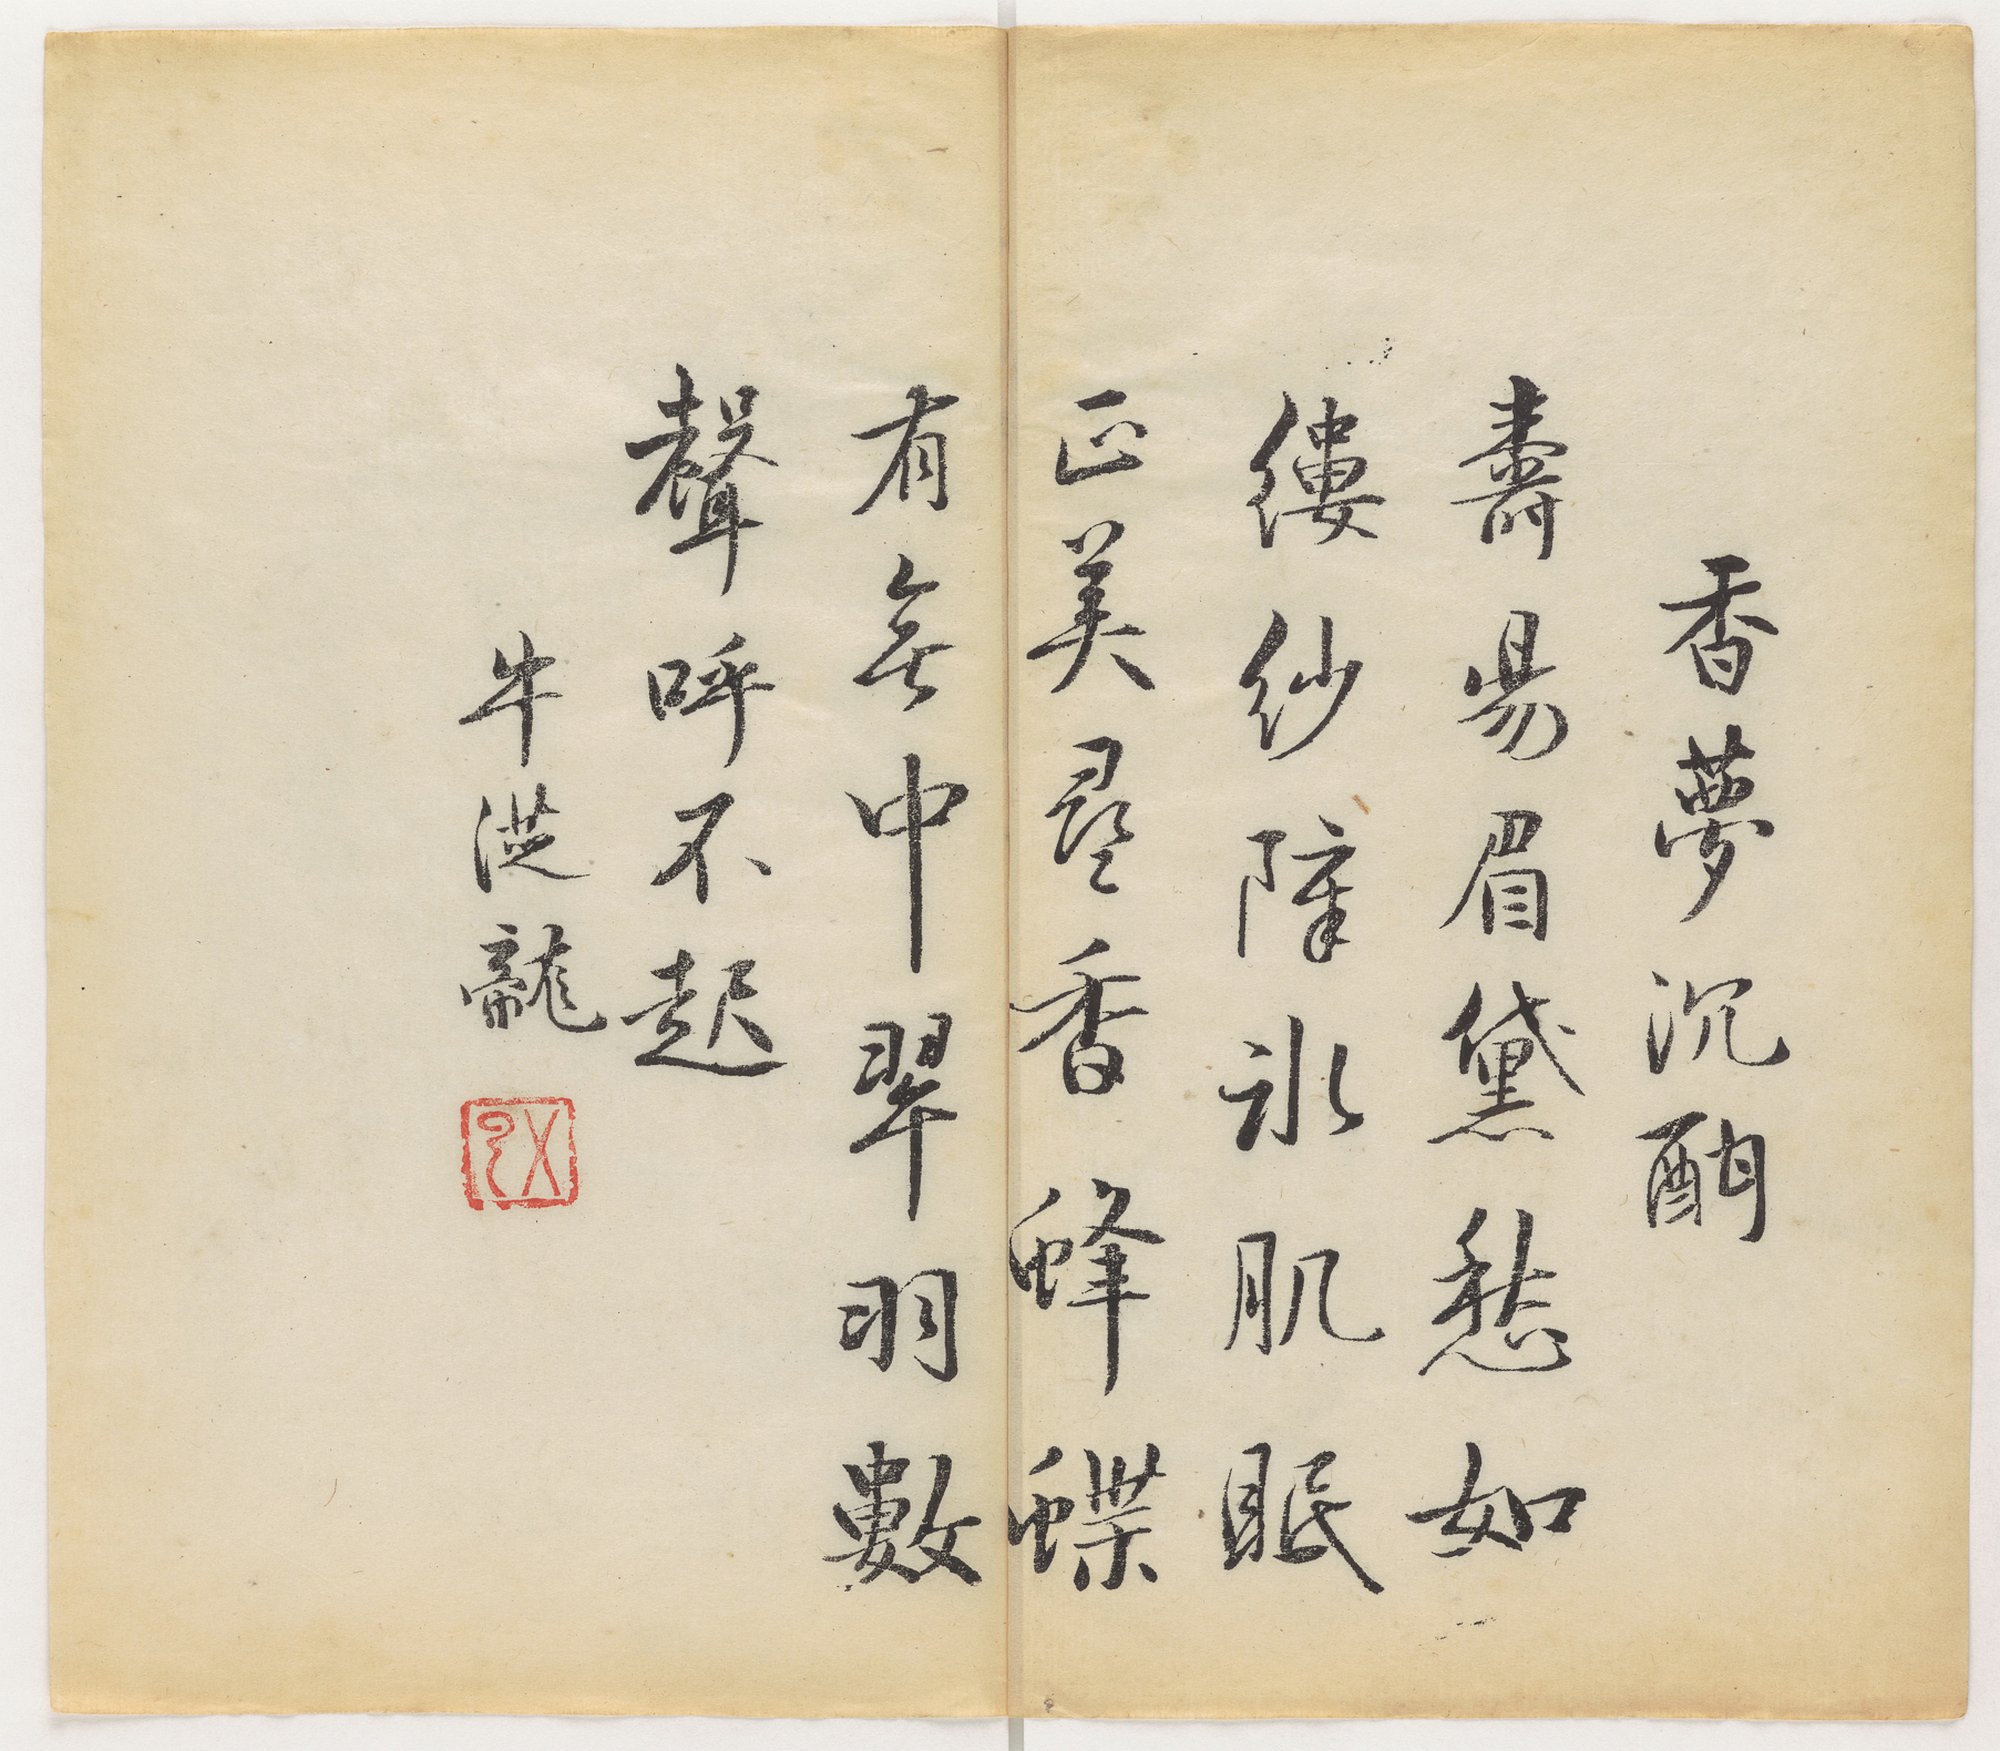 香夢沉酣
壽陽眉黛愁如
縷紗障冰肌眠
正美尋香蜂蝶
有無中翠羽數
聲呼不起
牛從龍